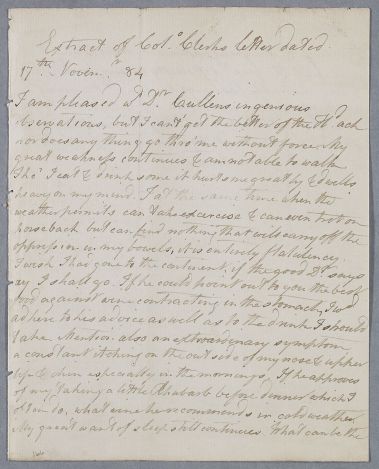 Extract of Col.º Clerks letter dated
17th Novem.r 84
I am pleased wt Dr. Cullens ingenious
observations, but I cant get the better of the Hd ach
nor does any thing go thro' me without force. My
great weakness continues & am not able to walk
Tho' I eat & drink some it hurts me greatly & dwells
heavy on my mind. I at the same time when the
weather permits can take exercise & can even trot on
horseback but can find nothing that will carry off the
oppression in my bowels, it is entirely flatulency.
I wish I had gone to the continent, if the good Dr. says
ay I shall go. If he could point out to you the best
food against wine contracting in the stomach, I wd
adhere to his advice as well as to the drink I should
take. Mention also an extraordinary symptom
a constant itching on the out side of my nose & upper
lip & chin especially in the mornings, If he approves
of my taking a little Rhubarb before dinner which I
often do, what wine he recommends in cold weather
My great want of sleep still continues What can be the